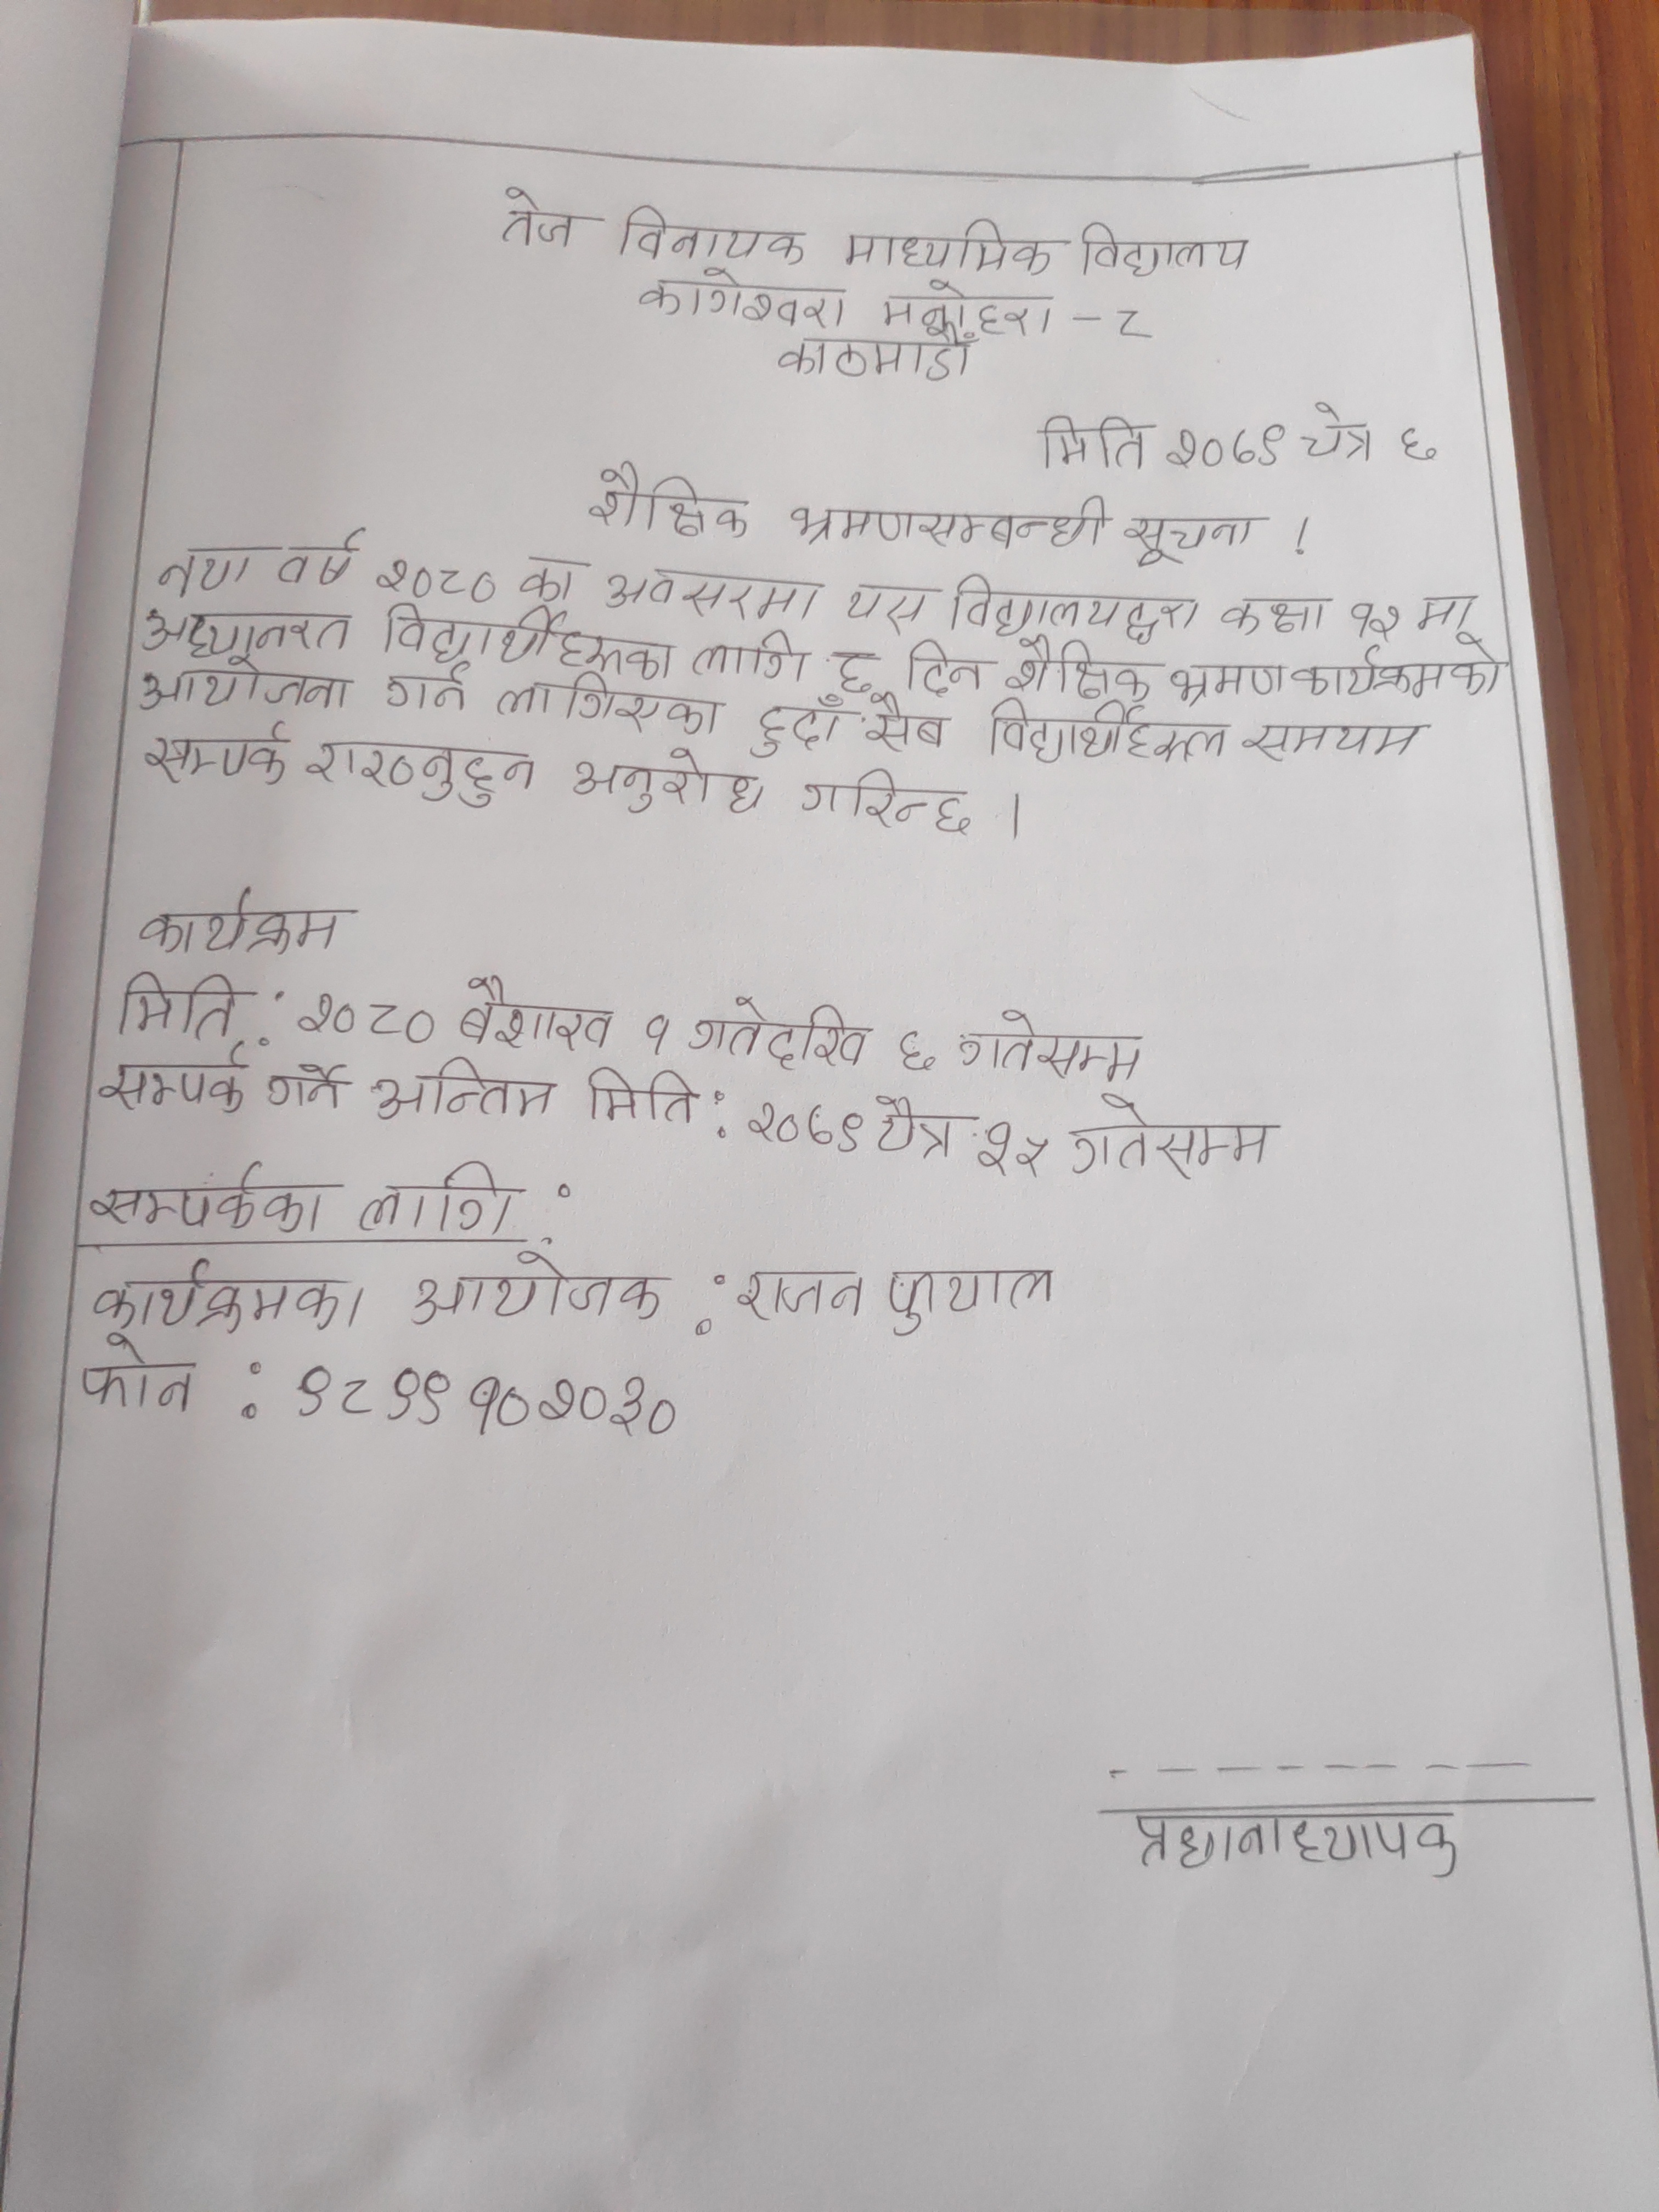 तेज विनायक माध्यमिक विद्यालय
कागेश्वरा मनोहरा - ८
काठमाडौँ
मिति २०७९ चैत्र ६
शैक्षिक भ्रमणसम्बन्धी सूचना !
नया वर्ष २०८० का अवसरमा यस विद्यालयद्वारा कक्षा १२ मा
अध्यनरत विद्यार्थीहरूका लागि ६ दिन शैक्षिक भ्रमण कार्यक्रमको
आयोजना गर्न लागिएका हुदाँ सैब विद्यार्थीहरूल समयम
सम्पर्क राख्नुहुन अनुरोध गरिन्छ ।
कार्यक्रम
मिति : २०८० बैशाख १ गतेदखि ६ गतेसम्म
सम्पर्क गर्ने अन्तिम मिति : २०७९ चैत्र २५ गतेसम्म
सम्पर्कका लागि :
कार्यक्रमका आयोजक : राजन फुयाल
फोन : ९८९९१०२०३०
प्रधानाध्यापक